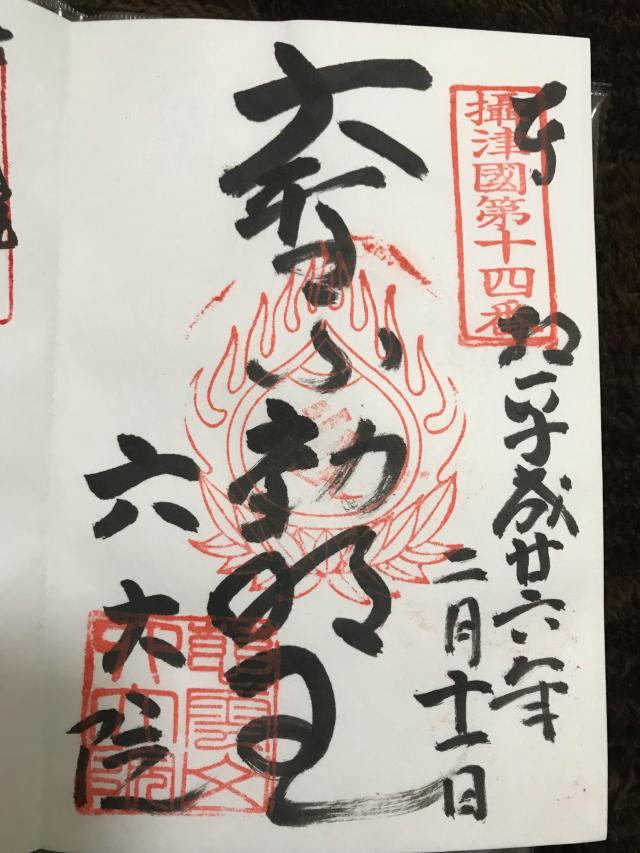 奉拝
攝津國第十四番
平成廿六年
二月十一日
大聖不動明王
六大院